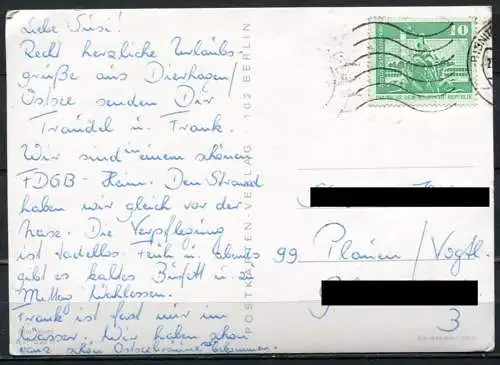 Liebe Susi!
Recht herzliche Urlaubs-
grüße aus Dierhagen/
Ostsee senden Dir
Traudel u. Frank.
Wir sind in einem schönen
FDGB-Heim. Den Strand
haben wir gleich vor der
Nase. Die Verpflegung
ist tadellos. Früh u. abends
gibt es kaltes Büfett u. zu
Mittag Wahlessen.
Frank ist fast nur im
Wasser. Wir haben schon
ganz schön Ostseebräune bekommen.
POSTKARTEN-VERLAG 102 BERLIN
10
DEUTSCHE DEMOKRATISCHE REPUBLIK
99 Plauen/Vogtl.
3